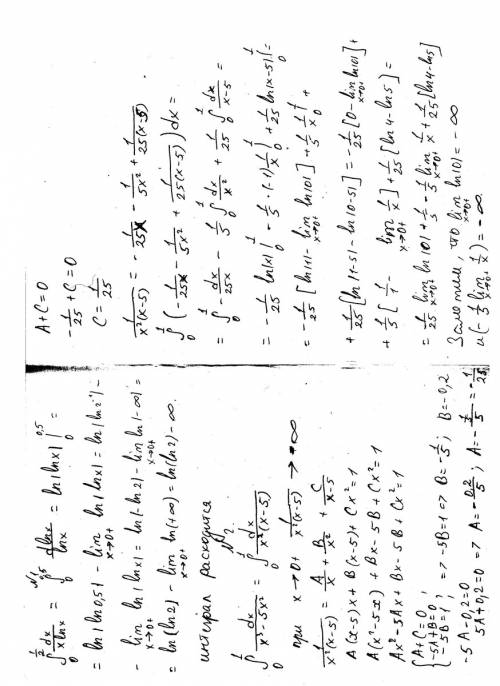 N1
∫₀^{1/2} dx/(x ln x) = ∫₀^{0,5} d ln x/ln x = ln|ln x| |₀^{0,5} =
= ln|ln 0,5| - lim_{x→0+} ln|ln x| = ln|ln 2⁻¹| -
- lim_{x→0+} ln|ln x| = ln|-ln 2| - lim_{x→0+} ln|-∞| =
= ln(ln 2) - lim_{x→0+} ln(+∞) = ln(ln 2) - ∞.
интеграл расходится
N2.
∫₀^1 dx/(x³-5x²) = ∫₀^1 dx/(x²(x-5))
при x→0+ 1/(x²(x-5)) → +∞
1/(x²(x-5)) = A/x + B/x² + C/(x-5)
A(x-5)x + B(x-5) + Cx² = 1
A(x²-5x) + Bx - 5B + Cx² = 1
Ax² - 5Ax + Bx - 5B + Cx² = 1
{A+C=0; -5A+B=0; -5B=1; => -5B=1 => B=-1/5; B=-0,2
-5A-0,2=0
5A+0,2=0 => A=-0,2/5; A=-1/5/5=-1/25
A+C=0
-1/25+C=0
C=1/25
1/(x²(x-5)) = -1/25x - 1/5x² + 1/25(x-5)
∫₀^1 (-1/25x - 1/5x² + 1/25(x-5)) dx =
= ∫₀^1 -dx/25x - 1/5 ∫₀^1 dx/x² + 1/25 ∫₀^1 dx/(x-5) =
= -1/25 ln|x| |₀^1 - 1/5·(-1) 1/x |₀^1 + 1/25 ln|x-5| |₀^1 =
= -1/25 [ln|1| - lim_{x→0+} ln|0|] + 1/5 1/x |₀^1 +
+ 1/25 [ln|1-5| - ln|0-5|] = -1/25 [0 - lim_{x→0+} ln|0|] +
+ 1/5 [1/1 - lim_{x→0+} 1/x] + 1/25 [ln 4 - ln 5] =
= 1/25 lim_{x→0+} ln|0| + 1/5 - 1/5 lim_{x→0+} 1/x + 1/25 [ln 4 - ln 5]
Заметим, что lim_{x→0+} ln|0| = -∞
и (-1/5 lim_{x→0+} 1/x) = -∞